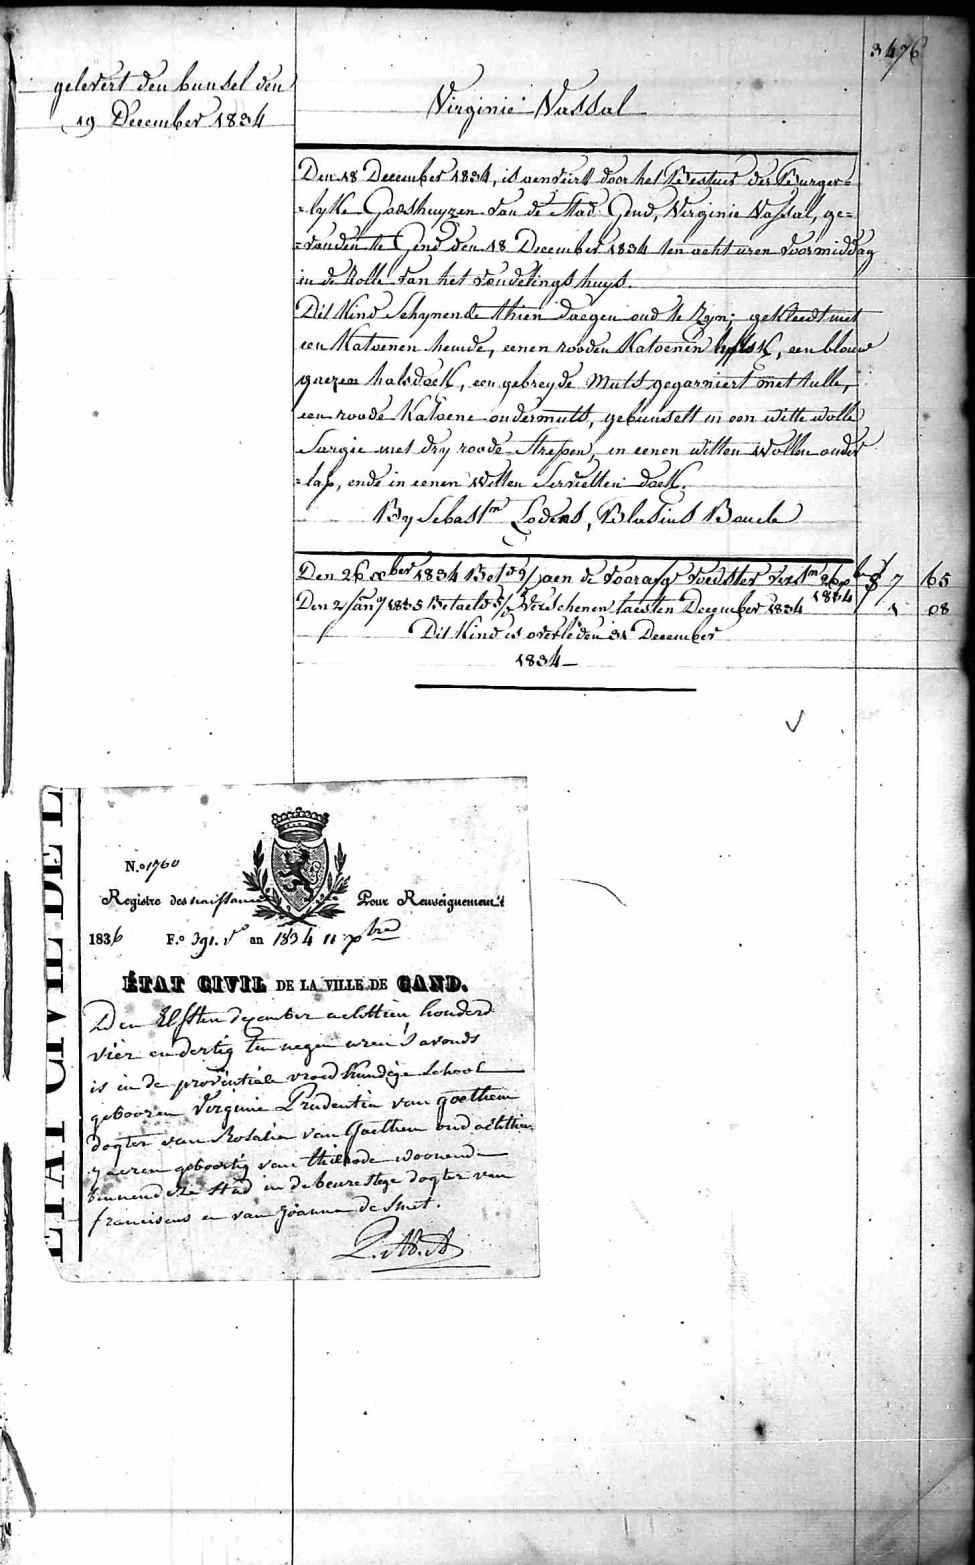 3476
gelevert den bunsel den
19 December 1834
Virginie Vassal
Den 18 December 1834, is aenveirt door het Bestuer der Burger=
=lyke Godshuyzen van de Stad Gend, Virginie Vassal, ge=
=vonden te Gend den 18 December 1834 ten acht uren voormiddag
in de Rolle van het vondelingshuys.
Dit Kind Schynende thien daegen oud te Zyn; gekleedt met
een Katoenen hemde, eenen rooden Katoenen, een blouw
gaezen halsdoek, een gebreyde Muts gegarniert met tulle,
een roode Katoene ondermuts, gebunselt in een witte wolle
Sargie met dry roode Strepen, in eenen witten Wollen onder
=lap, ende in eenen Witten Servietten doek.
By Sebast.n Lodens, Blasius Boucle
Den 26 xber 1834 Bet.d aen de voorafg.e voedster verst.n 26 xber 1834 7 65
Den 2 Jan.y 1835 Betaeld verschenen laesten December 1834 1 08
Dit Kind is overleden 31 December
1834—
ÉTAT CIVIL DE L
N.o 1760
Registre des naissance Pour Renseignement
1836 F.o 391. v.o an 1834 11 xbre
ÉTAT CIVIL DE LA VILLE DE GAND.
Den Elfsten december achttien honderd
vier en dertig ten negen uren 's avonds
is in de provintiale vroedkundige School
gebooren Virginie Prudentia van goethem
dogter van Rosalia van Goethem oud achttien
jaeren geboortig van thielrode woonende
binnen deze Stad in de beurestege dogter van
franciscus en van Joanna de Smet.